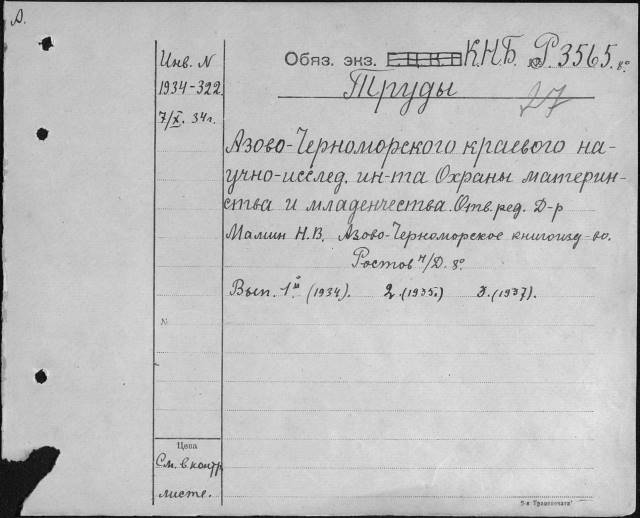 А.
Инв. N
1934-322
7/X. 34г.
Обяз. экз. К.Н.Б. Р3565. 8º
Труды
27
Азово-Черноморского краевого на-
учно-исслед. ин-та Охраны материн-
ства и младенчества. Отв. ред. Д-р
Мамин Н.В. Азово-Черноморское книгоизд-во.
Ростов н/Д. 8º
Вып. 1й (1934). 2. (1935.) 3. (1937).
№
Цена
См. в контр
листе.
5-я Транспечати